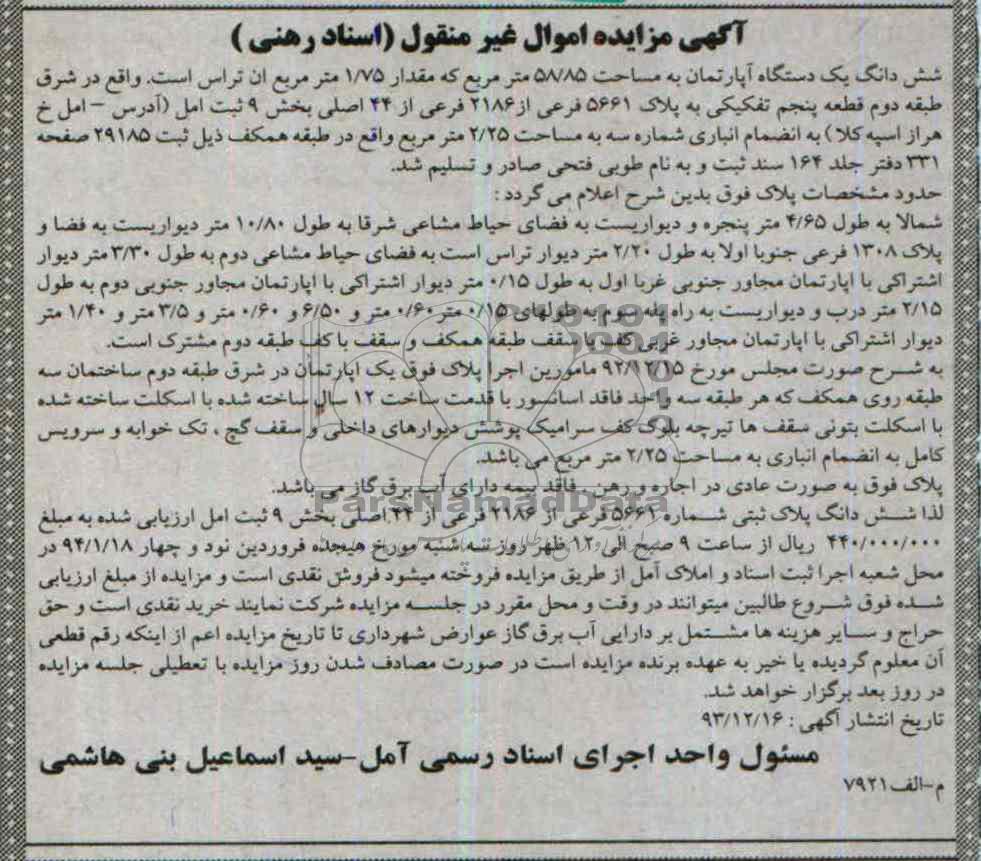 آگهی مزایده اموال غیر منقول (اسناد رهنی )
شش دانگ یک دستگاه آپارتمان به مساحت ۵۸/۸۵ متر مربع که مقدار ۱/۷۵ متر مربع ان تراس است. واقع در شرق
طبقه دوم قطعه پنجم تفکیکی به پلاک ۵۶۶۱ فرعی از۲۱۸۶ فرعی از ۴۴ اصلی بخش ۹ ثبت امل (آدرس – امل خ
هراز اسپه کلا ) به انضمام انباری شماره سه به مساحت ۲/۲۵ متر مربع واقع در طبقه همکف ذیل ثبت ۲۹۱۸۵ صفحه
۳۳۱ دفتر جلد ۱۶۴ سند ثبت و به نام طوبی فتحی صادر و تسلیم شد.
حدود مشخصات پلاک فوق بدین شرح اعلام می گردد :
شمالا به طول ۴/۶۵ متر پنجره و دیواریست به فضای حیاط مشاعی شرقا به طول ۱۰/۸۰ متر دیواریست به فضا و
پلاک ۱۳۰۸ فرعی جنوبا اولا به طول ۲/۲۰ متر دیوار تراس است به فضای حیاط مشاعی دوم به طول ۳/۳۰ متر دیوار
اشتراکی با اپارتمان مجاور جنوبی غربا اول به طول ۰/۱۵ متر دیوار اشتراکی با اپارتمان مجاور جنوبی دوم به طول
۲/۱۵ متر درب و دیواریست به راه پله سوم به طولهای ۰/۱۵ متر۰/۶۰ متر و ۶/۵۰ و ۰/۶۰ متر و ۳/۵ متر و ۱/۴۰ متر
دیوار اشتراکی با اپارتمان مجاور غربی کف با سقف طبقه همکف و سقف با کف طبقه دوم مشترک است.
به شرح صورت مجلس مورخ ۹۲/۱۲/۱۵ مامورین اجرا پلاک فوق یک اپارتمان در شرق طبقه دوم ساختمان سه
طبقه روی همکف که هر طبقه سه واحد فاقد اسانسور با قدمت ساخت ۱۲ سال ساخته شده با اسکلت ساخته شده
با اسکلت بتونی سقف ها تیرچه بلوک کف سرامیک پوشش دیوارهای داخلی و سقف گچ ، تک خوابه و سرویس
کامل به انضمام انباری به مساحت ۲/۲۵ متر مربع می باشد.
پلاک فوق به صورت عادی در اجاره و رهن فاقد بیمه دارای آب برق گاز می باشد.
لذا شش دانگ پلاک ثبتی شماره ۵۶۶۱ فرعی از ۲۱۸۶ فرعی از ۴۴ اصلی بخش ۹ ثبت امل ارزیابی شده به مبلغ
۴۴۰/۰۰۰/۰۰۰ ریال از ساعت ۹ صبح الی ۱۲ ظهر روز سه شنبه مورخ هیجده فروردین نود و چهار ۹۴/۱/۱۸ در
محل شعبه اجرا ثبت اسناد و املاک آمل از طریق مزایده فروخته میشود فروش نقدی است و مزایده از مبلغ ارزیابی
شده فوق شروع طالبین میتوانند در وقت و محل مقرر در جلسه مزایده شرکت نمایند خرید نقدی است و حق
حراج و سایر هزینه ها مشتمل بر دارایی آب برق گاز عوارض شهرداری تا تاریخ مزایده اعم از اینکه رقم قطعی
آن معلوم گردیده یا خیر به عهده برنده مزایده است در صورت مصادف شدن روز مزایده با تعطیلی جلسه مزایده
در روز بعد برگزار خواهد شد.
تاریخ انتشار آگهی : ۹۳/۱۲/۱۶
مسئول واحد اجرای اسناد رسمی آمل-سید اسماعیل بنی هاشمی
م-الف۷۹۲۱
ParsNamadData